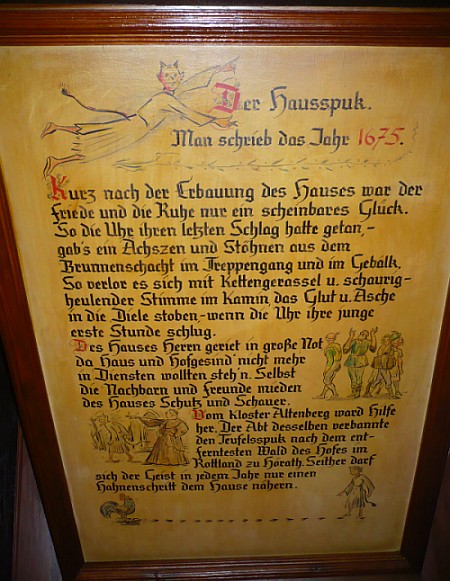 Der Hausspuk.
Man schrieb das Jahr 1675.
Kurz nach der Erbauung des Hauses war der
Friede und die Ruhe nur ein scheinbares Glück.
So die Uhr ihren letzten Schlag hatte getan,-
gab's ein Ächszen und Stöhnen aus dem
Brunnenschacht im Treppengang und im Gebälk.
So verlor es sich mit Kettengerassel u. schaurig-
heulender Stimme im Kamin, das Glut u. Asche
in die Diele stoben,- wenn die Uhr ihre junge
erste Stunde schlug.
Des Hauses Herrn geriet in große Not
da Haus und Hofgesind' nicht mehr
in Diensten wollten steh'n. Selbst
die Nachbarn und Freunde mieden
des Hauses Schutz und Schauer.
Vom Kloster Altenberg ward Hilfe
her. Der Abt desselben verbannte
den Teufelsspuk nach dem ent-
ferntesten Wald des Hofes im
Rottland zu Horath. Seither darf
sich der Geist in jedem Jahr nur einen
Hahnenschritt dem Hause nähern.